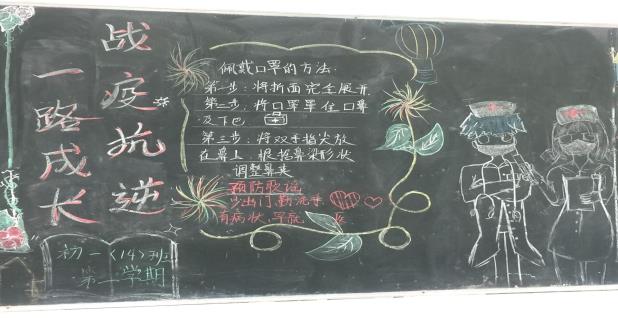 战疫抗逆
一路成长
初一<14>班
第二学期
佩戴口罩的方法:
第一步:将折面完全展开
第二步:将口罩罩住口鼻
及下巴
第三步:将双手指尖放
在鼻上,根据鼻梁形状
调整鼻夹
预防歌谣
少出门,勤洗手
有病状,早就医